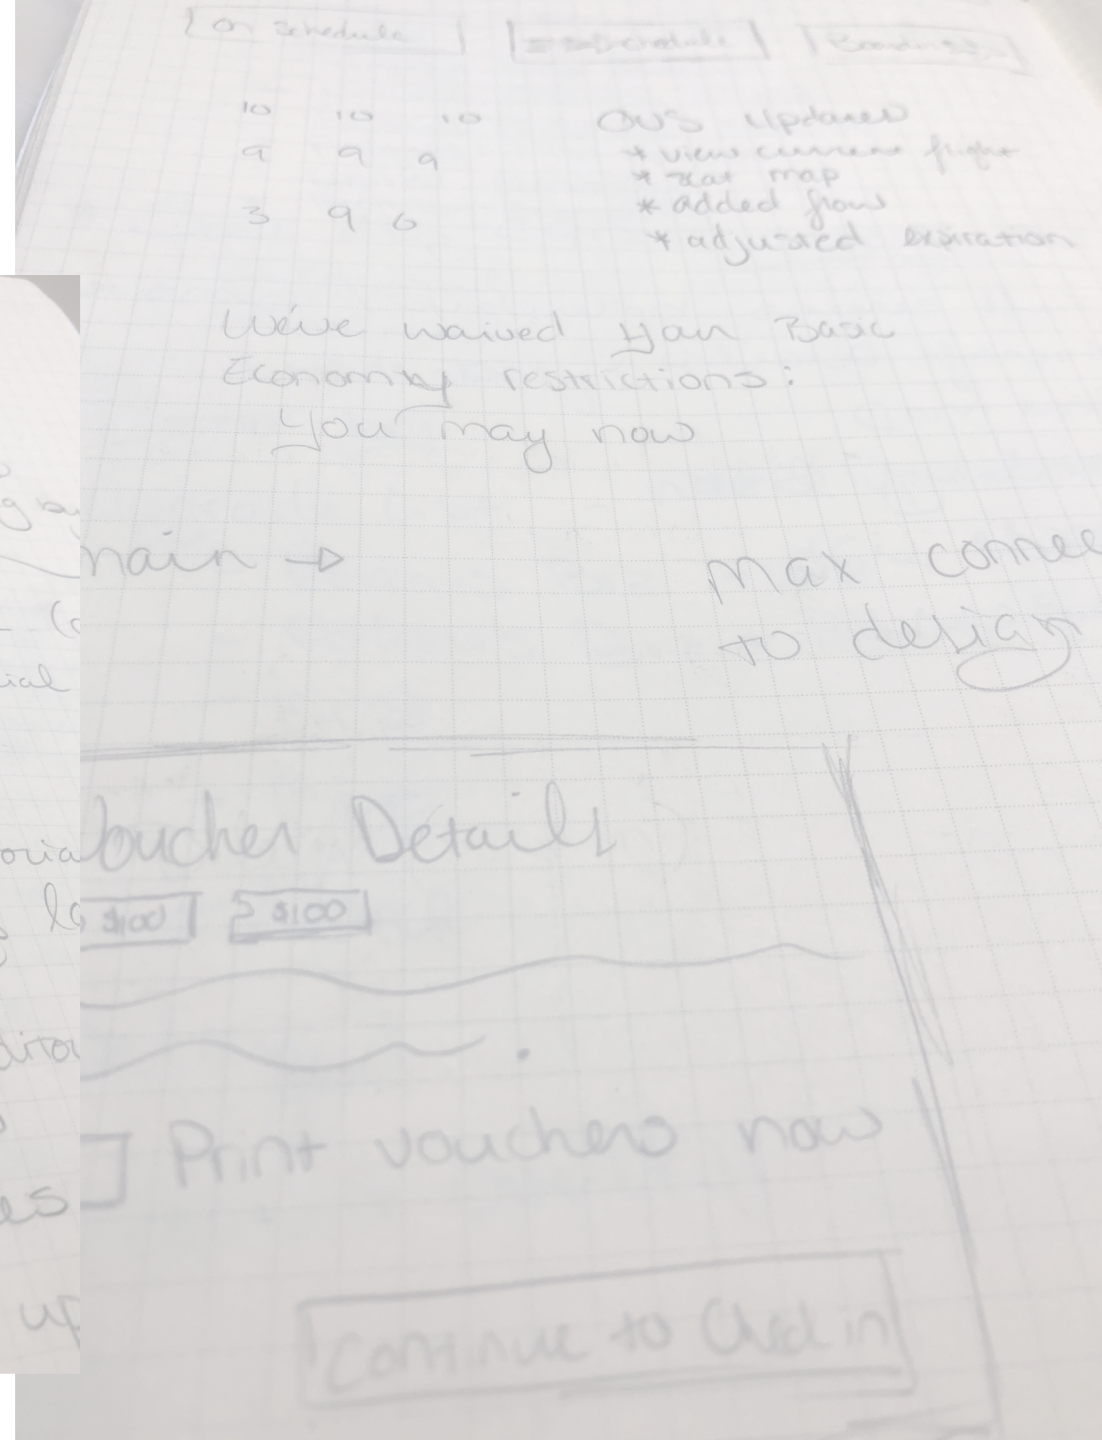 on schedule
10 10 10
9 9 9
3 9 6
OVS Updates
* view current flight
* seat map
* added from
* adjusted expiration
We've waived your Basic
Economy restrictions:
You may now
main →
max connec
to design
Voucher Details
$100 $100
Print vouchers now
Continue to Check in
g by
ial
oria
ditor
es
up